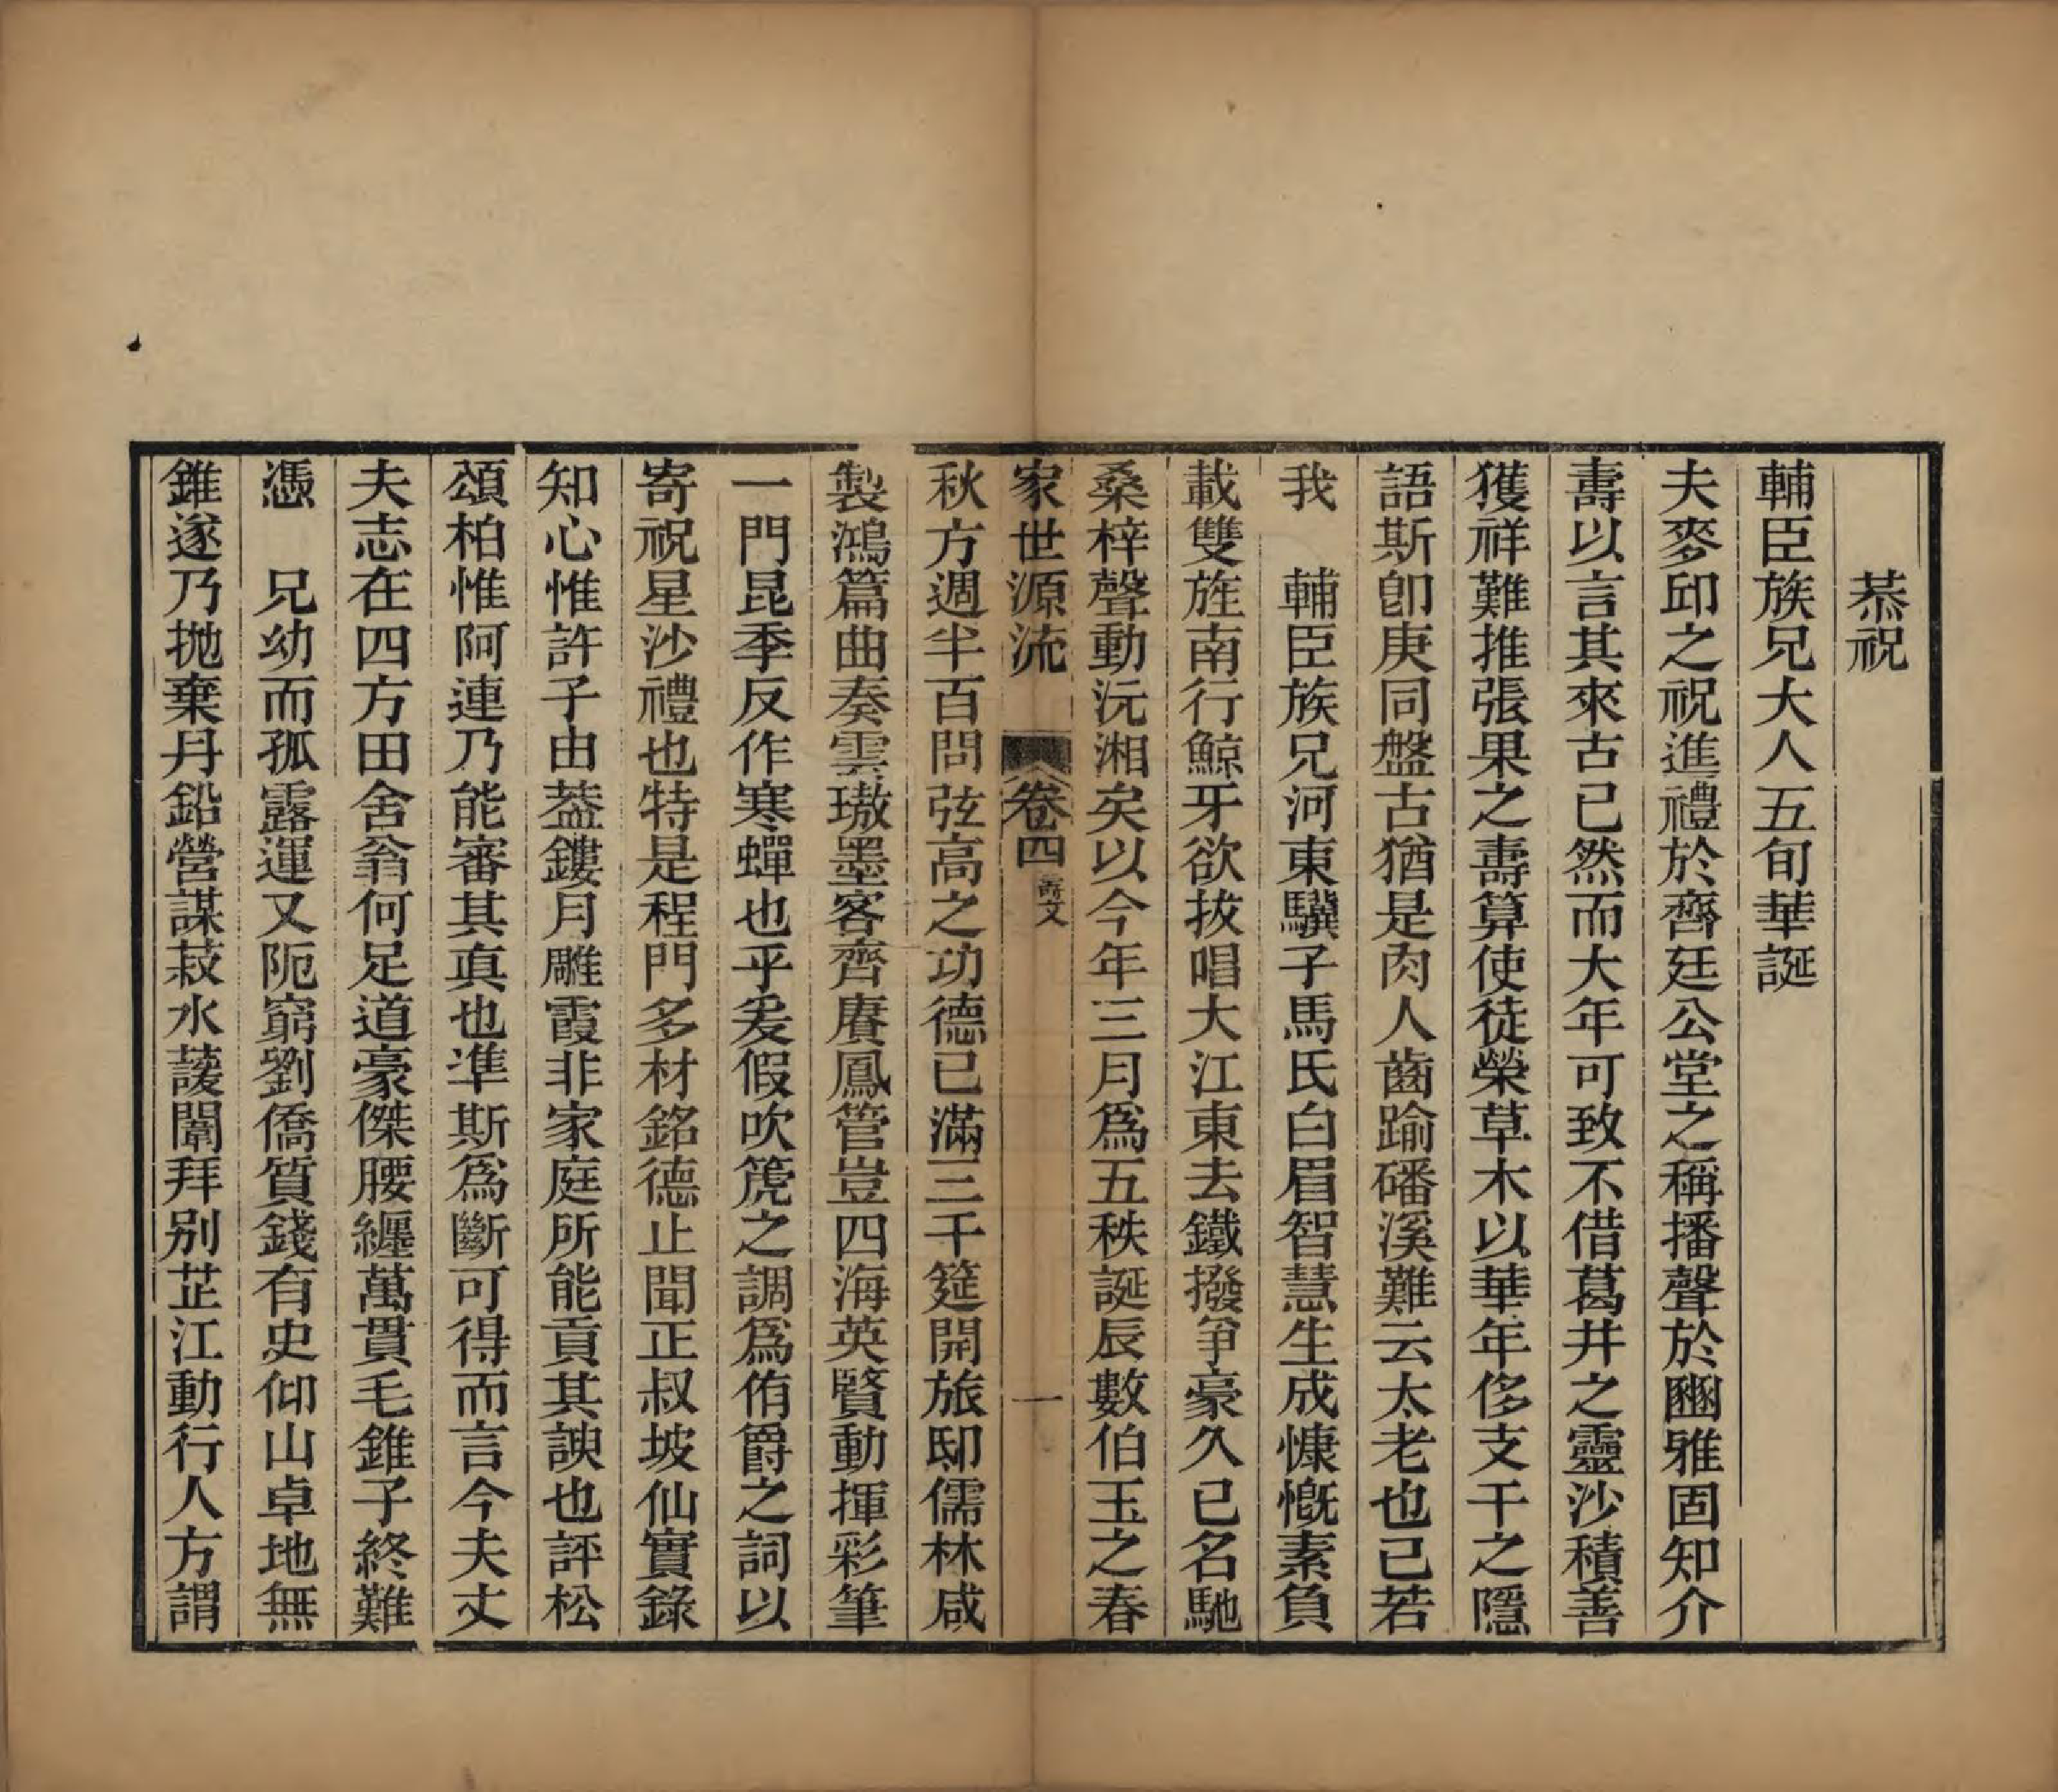 恭祝
輔臣族兄大人五旬華誕
夫麥邱之祝進禮於齊廷公堂之稱播聲於豳雅固知介
壽以言其來古已然而大年可致不借葛井之靈沙積善
獲祥難推張果之壽算使徒榮草木以華年侈支干之隱
語斯卽庚同盤古猶是肉人齒踰磻溪難云太老也已若
我　輔臣族兄河東驥子馬氏白眉智慧生成慷慨素負
載雙旌南行鯨牙欲拔唱大江東去鐵撥爭豪久已名馳
桑梓聲動沅湘矣以今年三月爲五秩誕辰數伯玉之春
家世源流　卷四 壽文　一
秋方週半百問弦高之功德已滿三千筵開旅邸儒林咸
製鴻篇曲奏雲璈墨客齊賡鳳管豈四海英賢動揮彩筆
一門昆季反作寒蟬也乎爰假吹箎之調爲侑爵之詞以
寄祝星沙禮也特是程門多材銘德止聞正叔坡仙實錄
知心惟許子由葢鏤月雕霞非家庭所能貢其諛也評松
頌柏惟阿連乃能審其眞也準斯爲斷可得而言今夫丈
夫志在四方田舍翁何足道豪傑腰纏萬貫毛錐子終難
憑　兄幼而孤露運又阨窮劉僑質錢有史仰山卓地無
錐遂乃拋棄丹鉛營謀菽水諼闈拜别芷江動行人方謂